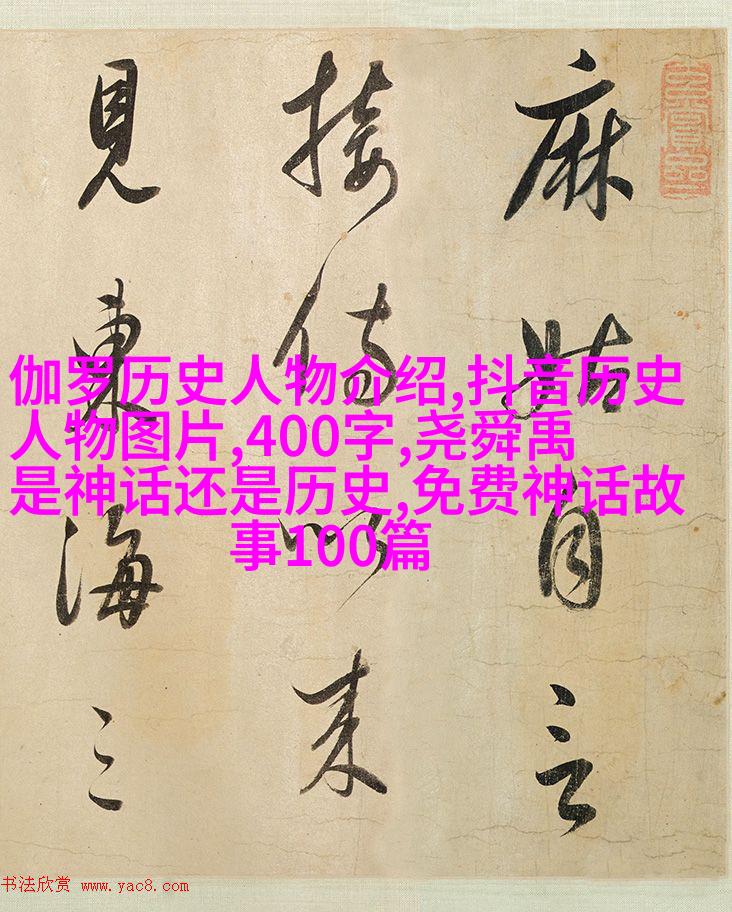 麻姑自言
接侍以来
見東海三
伽罗历史人物介绍,抖音历史
人物图片,400字,尧舜禹
是神话还是历史,免费神话故
事100篇
书法欣赏 www.yac8.com